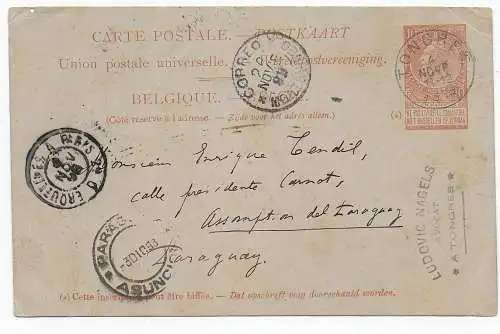 CARTE POSTALE. — POSTKAART
Union postale universelle. Algemeene Postvereeniging.
BELGIQUE.
(Côté réservé à l'adresse. — Zijde voor het adres alleen.)
(a)
TONGRES
NOV
CORREO
22
NOV
93
ERQUELINES A PARIS
Monsieur Enrique Tendil,
calle presidente Carnot,
Assomption del Paraguay
Paraguay.
LUDOVIC NAGELS
AVOCAT
A TONGRES
PARAG
ASUNCI
(a) Cette inscription peut être biffée. — Dat opschrift mag doorgehaald worden.